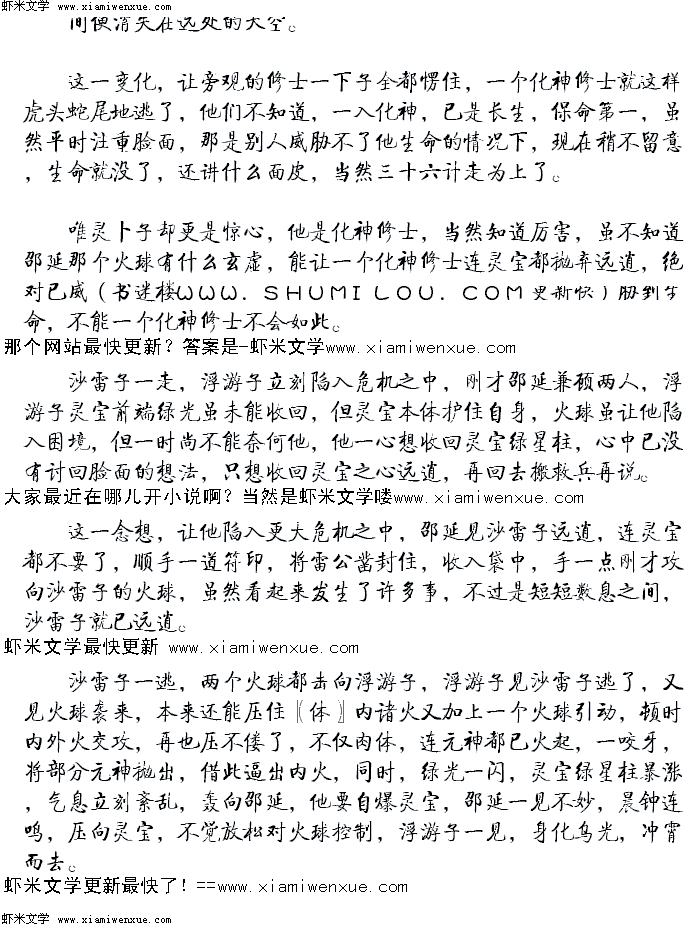 虾米文学 www.xiamiwenxue.com
间便消失在远处的天空。
这一变化，让旁观的修士一下子全都愣住，一个化神修士就这样
虎头蛇尾地逃了，他们不知道，一入化神，已是长生，保命第一，虽
然平时注重脸面，那是别人威胁不了他生命的情况下，现在稍不留意
，生命就没了，还讲什么面皮，当然三十六计走为上了。
唯灵卜子却更是惊心，他是化神修士，当然知道厉害，虽不知道
邵延那个火球有什么玄虚，能让一个化神修士连灵宝都抛弃远遁，绝
对已威（书迷楼ＷＷＷ．ＳＨＵＭＩＬＯＵ．ＣＯＭ更新快）胁到生
命，不能一个化神修士不会如此。
那个网站最快更新？答案是-虾米文学www.xiamiwenxue.com
沙雷子一走，浮游子立刻陷入危机之中，刚才邵延兼顾两人，浮
游子灵宝前端绿光虽未能收回，但灵宝本体护住自身，火球虽让他陷
入困境，但一时尚不能奈何他，他一心想收回灵宝绿星柱，心中已没
有讨回脸面的想法，只想收回灵宝之心远遁，再回去搬救兵再说。
大家最近在哪儿开小说啊？当然是虾米文学喽www.xiamiwenxue.com
这一念想，让他陷入更大危机之中，邵延见沙雷子远遁，连灵宝
都不要了，顺手一道符印，将雷公凿封住，收入袋中，手一点刚才攻
向沙雷子的火球，虽然看起来发生了许多事，不过是短短数息之间，
沙雷子就已远遁。
虾米文学最快更新 www.xiamiwenxue.com
沙雷子一逃，两个火球都击向浮游子，浮游子见沙雷子逃了，又
见火球袭来，本来还能压住〖体〗内诸火又加上一个火球引动，顿时
内外火交攻，再也压不偻了，不仅肉体，连元神都已火起，一咬牙，
将部分元神抛出，借此逼出内火，同时，绿光一闪，灵宝绿星柱暴涨
，气息立刻紊乱，轰向邵延，他要自爆灵宝，邵延一见不妙，晨钟连
鸣，压向灵宝，不觉放松对火球控制，浮游子一见，身化乌光，冲霄
而去。
虾米文学更新最快了！==www.xiamiwenxue.com
虾米文学 www.xiamiwenxue.com